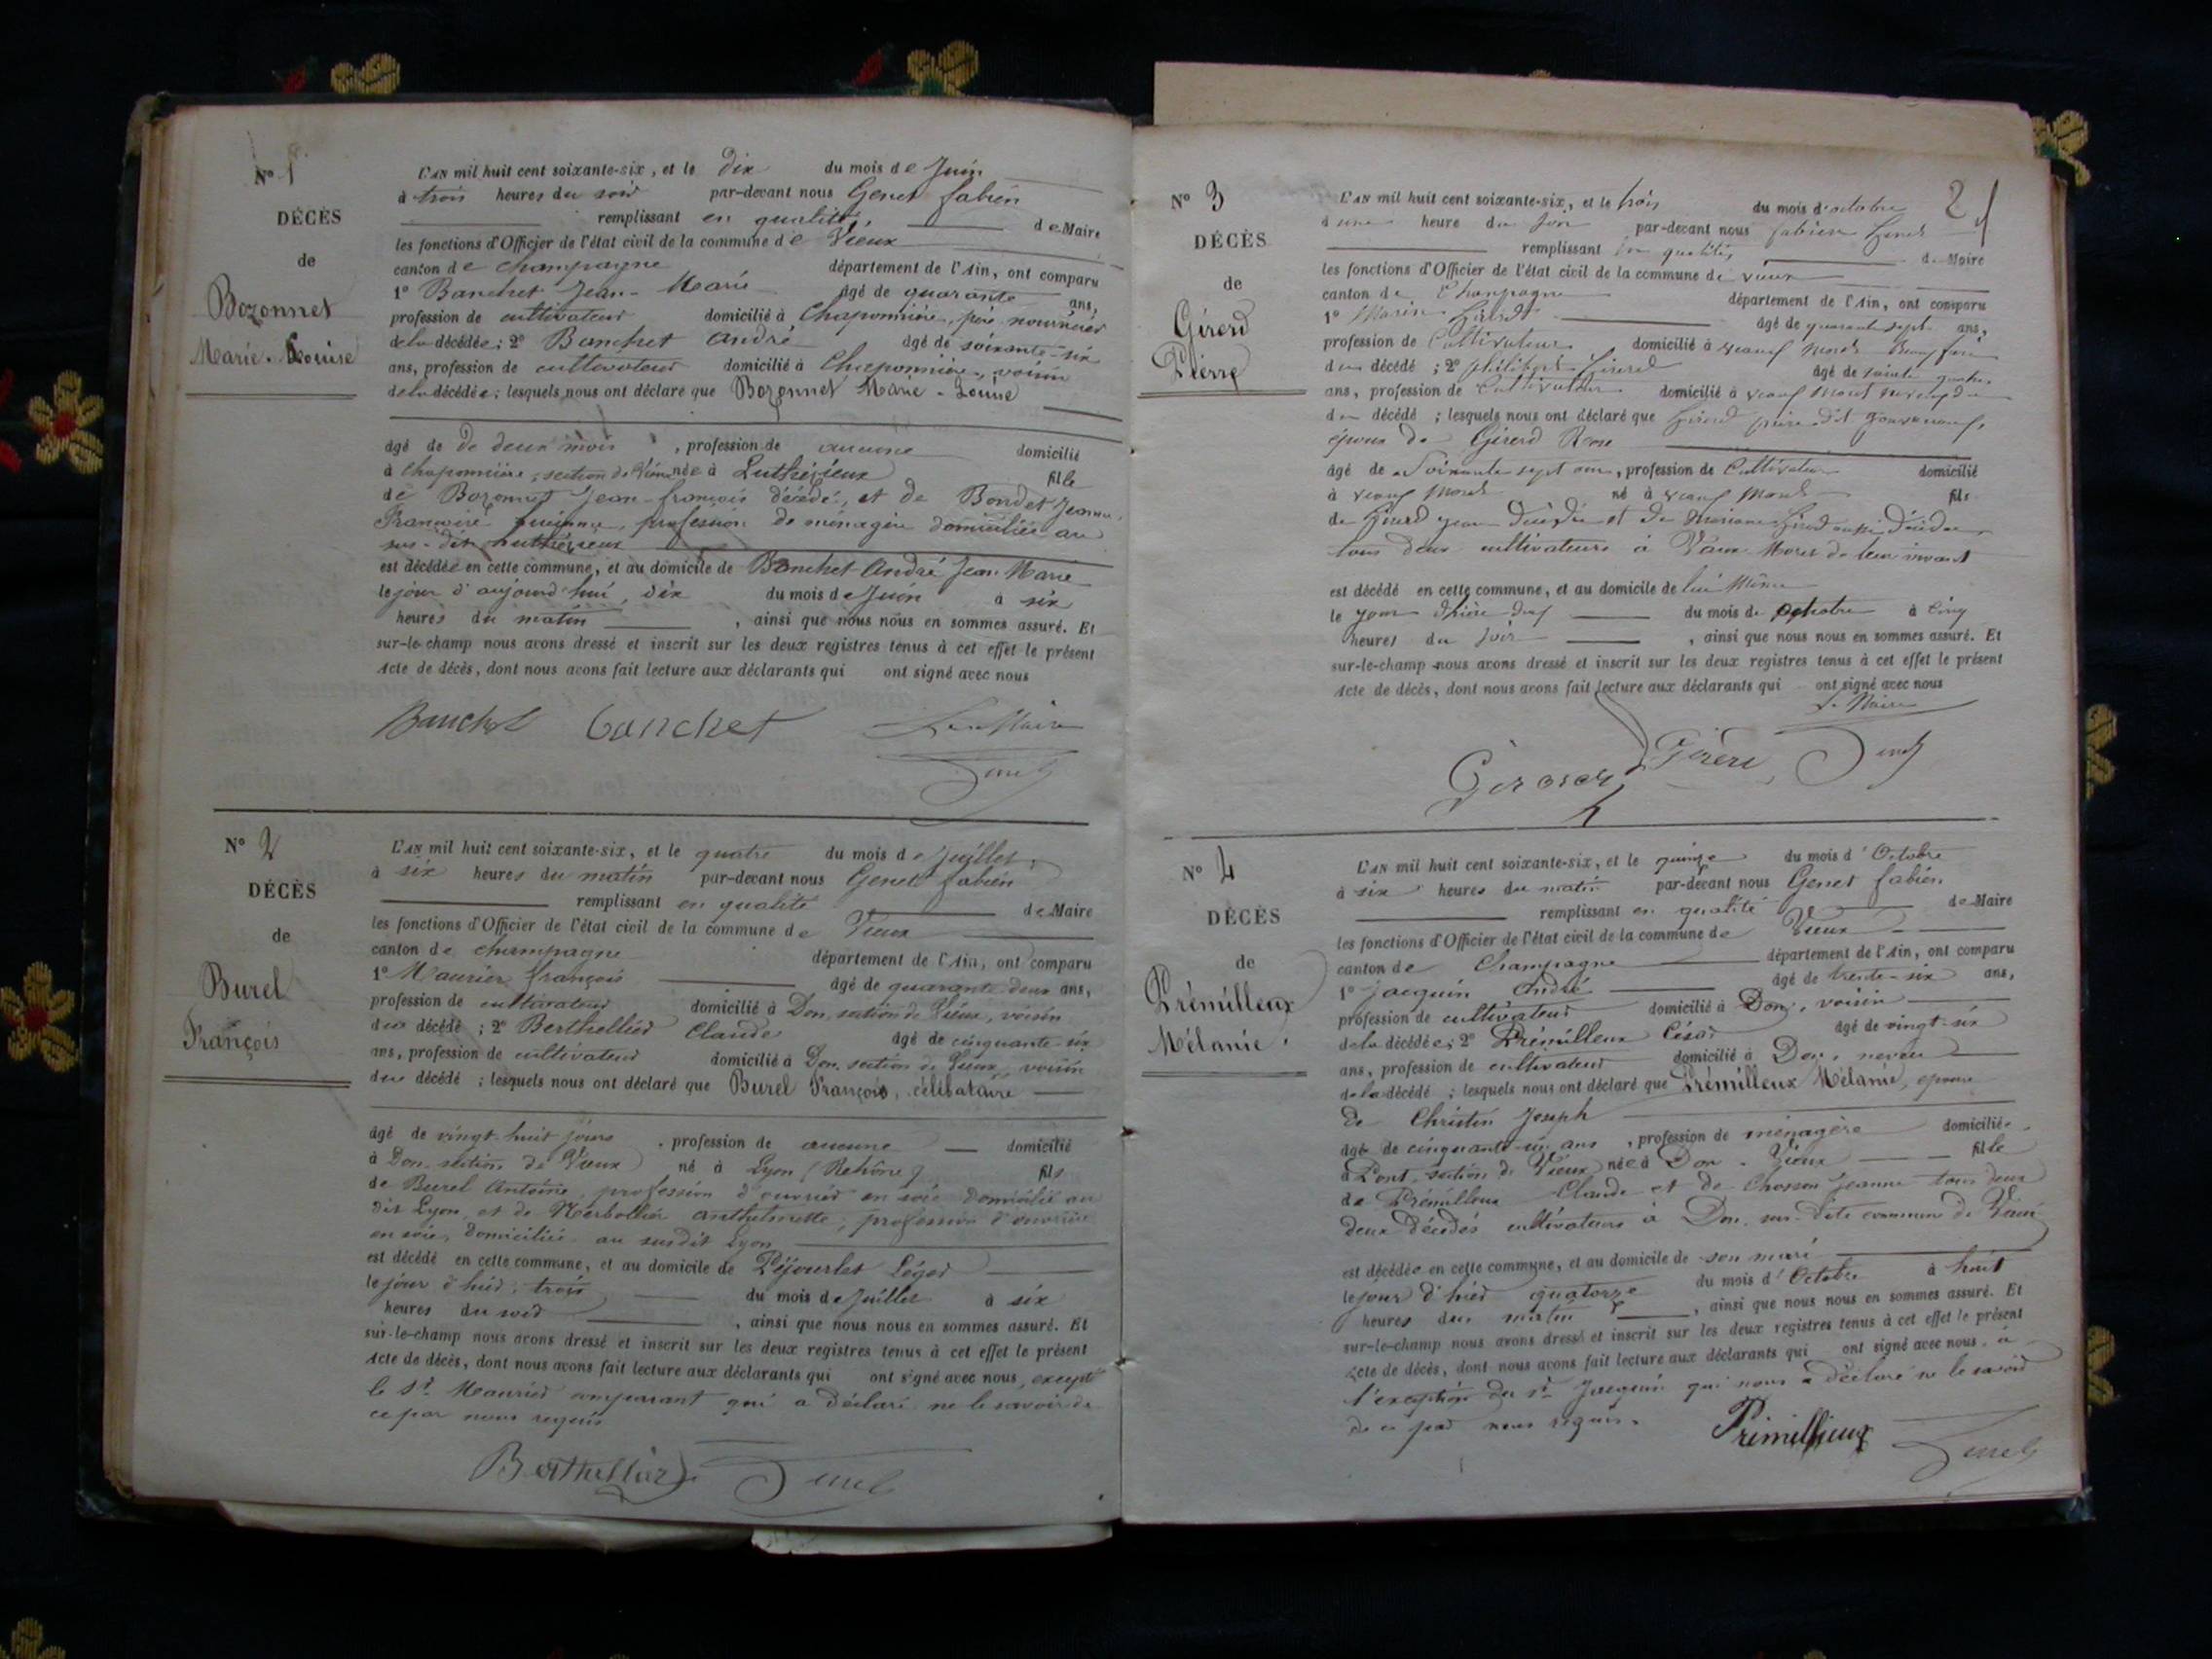 N° 1
DÉCÈS
de
Bozonnet
Marie-Louise
L'AN mil huit cent soixante-six, et le dix du mois de Juin
à trois heures du soir par-devant nous Genet fabien
remplissant en qualité, de Maire
les fonctions d'Officier de l'état civil de la commune de Vieux
canton de Champagne département de l'Ain, ont comparu
1° Banchet Jean-Marie âgé de quarante ans,
profession de cultivateur domicilié à Chaponnière, père nourricier
de la décédée; 2° Banchet André âgé de soixante-six
ans, profession de cultivateur domicilié à Chaponnière, voisin
de la décédée; lesquels nous ont déclaré que Bozonnet Marie-Louise
âgé de de deux mois, profession de aucune domicilié
à Chaponnière, section de Vieux née à Luthézieux fille
de Bozonnet Jean-françois décédé, et de Bondet Jeanne
Françoise, profession de ménagère domiciliée au
sus-dit Luthézieux
est décédée en cette commune, et au domicile de Banchet André Jean Marie
le jour d'aujourd'hui, dix du mois de Juin à six
heures du matin, ainsi que nous nous en sommes assuré. Et
sur-le-champ nous avons dressé et inscrit sur les deux registres tenus à cet effet le présent
acte de décès, dont nous avons fait lecture aux déclarants qui ont signé avec nous
Banchet banchet Le Maire
Genet
N° 2
DÉCÈS
de
Burel
François
L'AN mil huit cent soixante-six, et le quatre du mois de Juillet,
à six heures du matin par-devant nous Genet fabien
remplissant en qualité de Maire
les fonctions d'Officier de l'état civil de la commune de Vieux
canton de champagne département de l'Ain, ont comparu
1° Maurier françois âgé de quarante deux ans,
profession de cultivateur domicilié à Don, section de Vieux, voisin
du décédé; 2° Berthellier Claude âgé de cinquante-six
ans, profession de cultivateur domicilié à Don, section de Vieux, voisin
du décédé; lesquels nous ont déclaré que Burel François, célibataire
âgé de vingt-huit jours, profession de aucune domicilié
à Don section de Vieux né à Lyon (Rehône) fils
de Burel Antoine, profession d'ouvrier en soie domicilié au
dit Lyon, et de anthelmette, profession d'ouvrière
en soie, domiciliée au susdit Lyon
est décédé en cette commune, et au domicile de Péjourlet Léger
le jour d'hier, trois du mois de Juillet à six
heures du soir, ainsi que nous nous en sommes assuré. Et
sur-le-champ nous avons dressé et inscrit sur les deux registres tenus à cet effet le présent
acte de décès, dont nous avons fait lecture aux déclarants qui ont signé avec nous, excepté
le Sr. Maurier comparant qui a déclaré ne le savoir de
ce par nous requis
Berthellier Genet
2
N° 3
DÉCÈS
de
Gérerd
Pierre
L'AN mil huit cent soixante-six, et le trois du mois d'octobre
à une heure du soir par-devant nous fabien Genet
remplissant en qualité, de Maire
les fonctions d'Officier de l'état civil de la commune de vieux
canton de Champagne département de l'Ain, ont comparu
1° Marin âgé de quarante sept ans,
profession de Cultivateur domicilié à
du décédé; 2° philibert Girerd âgé de
ans, profession de Cultivateur domicilié à
du décédé; lesquels nous ont déclaré que
époux de Girerd Rose
âgé de Soixante sept ans, profession de Cultivateur domicilié
à né à fils
de Girerd décédé et de aussi décédée
tous deux cultivateurs à Vaux Morets de leur vivant
est décédé en cette commune, et au domicile de lui Même
le jour du mois de octobre à Cinq
heures du soir, ainsi que nous nous en sommes assuré. Et
sur-le-champ nous avons dressé et inscrit sur les deux registres tenus à cet effet le présent
acte de décès, dont nous avons fait lecture aux déclarants qui ont signé avec nous
Le Maire
Genet
N° 4
DÉCÈS
de
Prémilleux
Mélanie.
L'AN mil huit cent soixante-six, et le quinze du mois d'Octobre
à six heures du matin par-devant nous Genet fabien
remplissant en qualité de Maire
les fonctions d'Officier de l'état civil de la commune de Vieux
canton de Champagne département de l'Ain, ont comparu
1° Jacquin André âgé de trente-six ans,
profession de cultivateur domicilié à Don, voisin
de la décédée; 2° Prémilleux César âgé de vingt-six
ans, profession de cultivateur domicilié à Don, neveu
de la décédé; lesquels nous ont déclaré que Prémilleux Mélanie, épouse
de Christin Joseph
âgé de cinquante-six ans, profession de ménagère domiciliée
à Pont, section de Vieux née à Don - Vieux fille
de Prémilleux Claude et de Chosson Jeanne tous deux
deux décédés cultivateurs à Don, sus-dite commune de Vieux
est décédée en cette commune, et au domicile de son mari
le jour d'hier quatorze du mois d'Octobre à huit
heures du matin, ainsi que nous nous en sommes assuré. Et
sur-le-champ nous avons dressé et inscrit sur les deux registres tenus à cet effet le présent
acte de décès, dont nous avons fait lecture aux déclarants qui ont signé avec nous, à
l'exception du Sr. Jacquin qui nous a déclaré ne le savoir
de ce par nous requis.
Prémillieux Genet